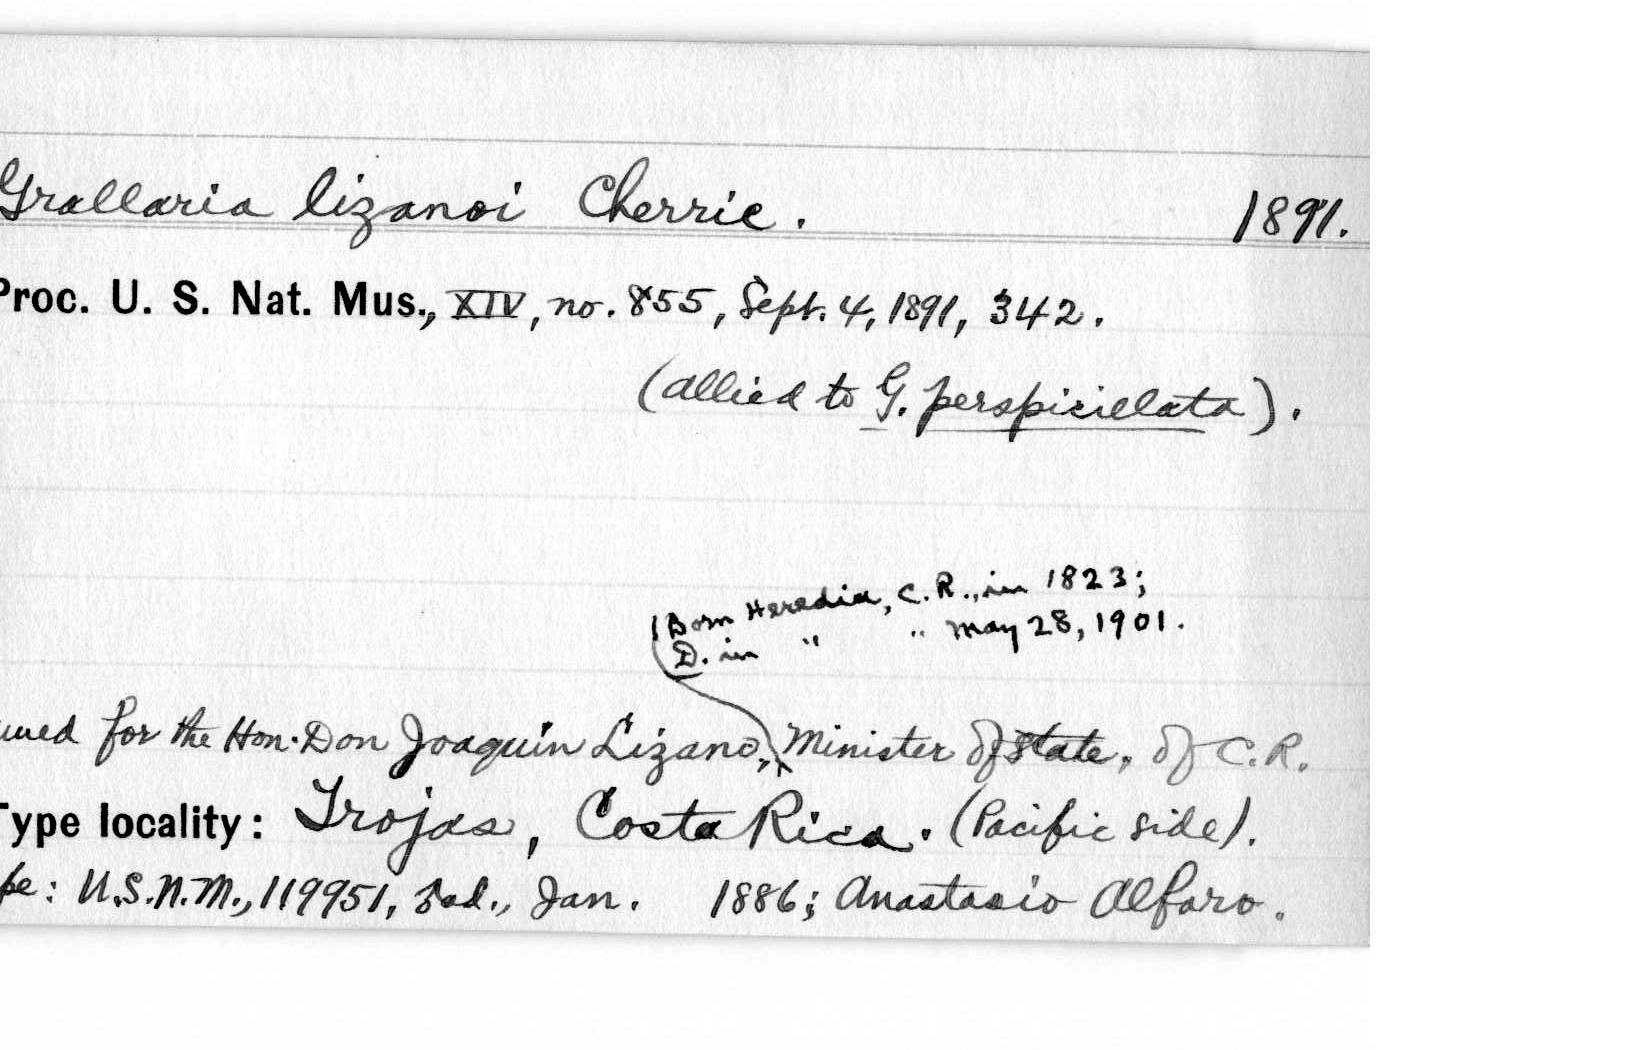 Grallaria lizanoi Cherrie. 1891.
Proc. U. S. Nat. Mus., XIV, no. 855, Sept. 4, 1891, 342.
(allied to G. perspicillata).
(Born Heredia, C. R., in 1823;
D. in " " May 28, 1901.
for the Hon. Don Joaquin Lizano, Minister of State, of C. R.
Type locality: Trojas, Costa Rica. (Pacific side).
pe: U.S.N.M., 119951, ad., Jan. 1886; Anastasio Alfaro.